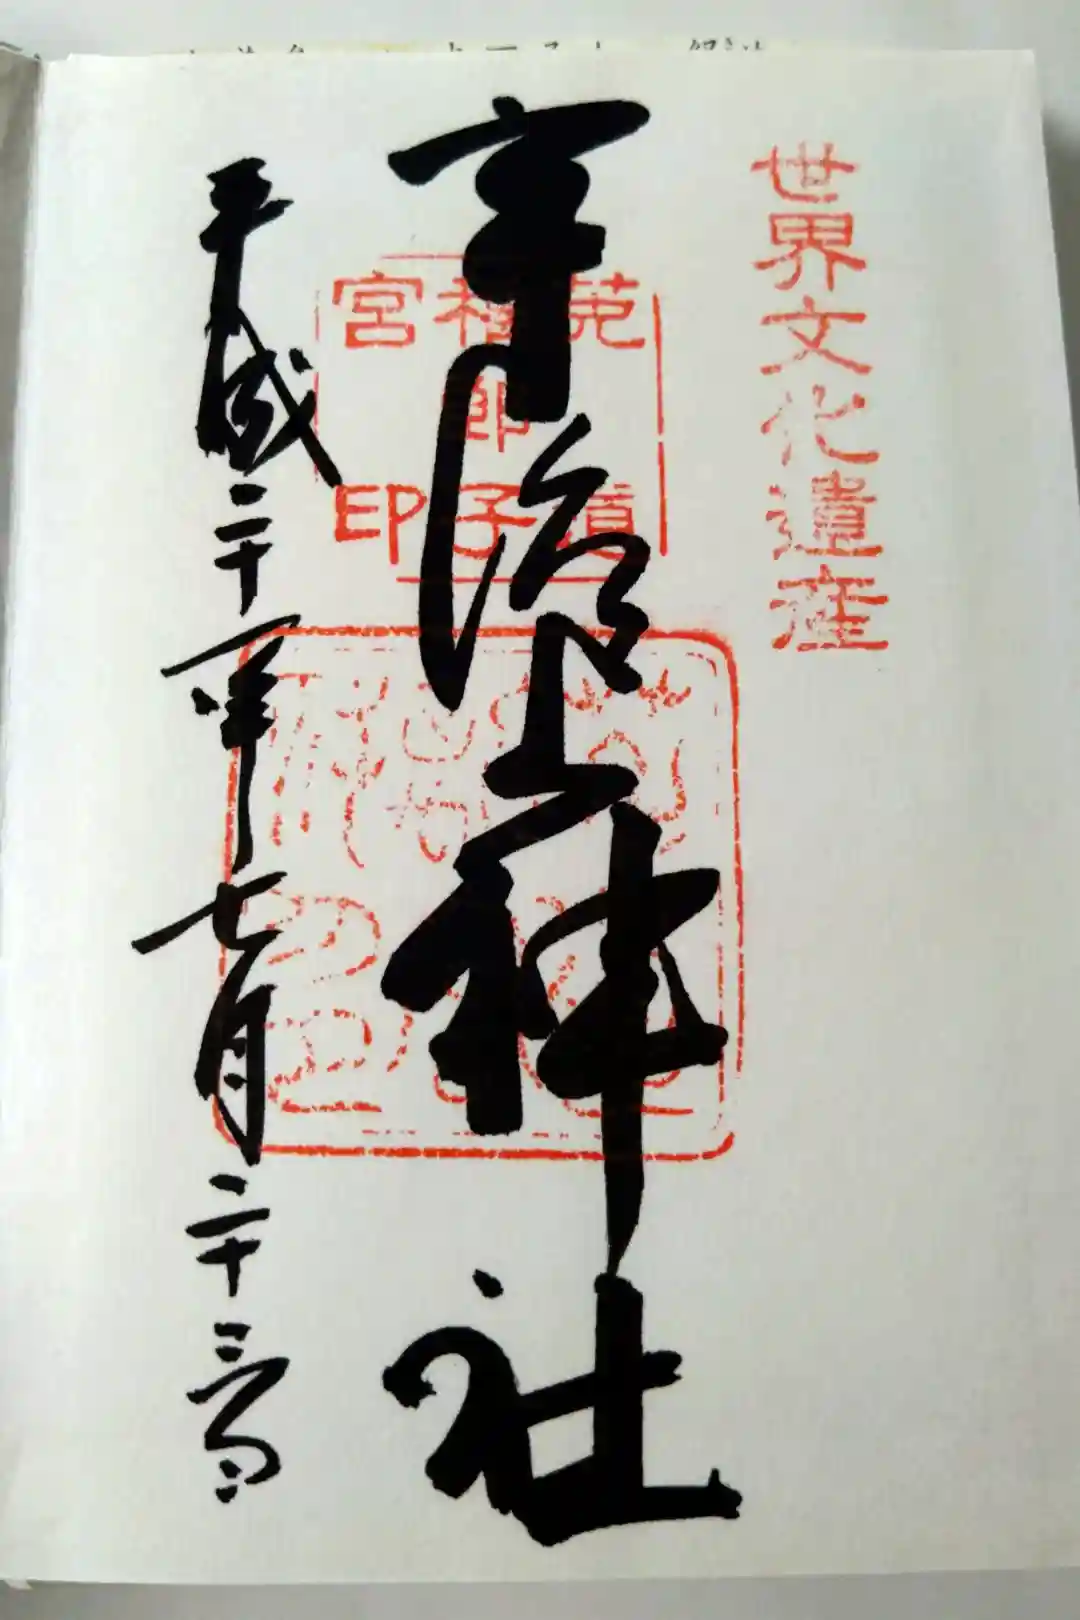 世界文化遺産
宇治上神社
菟道
稚郎子
宮印
平成二十年七月二十三日